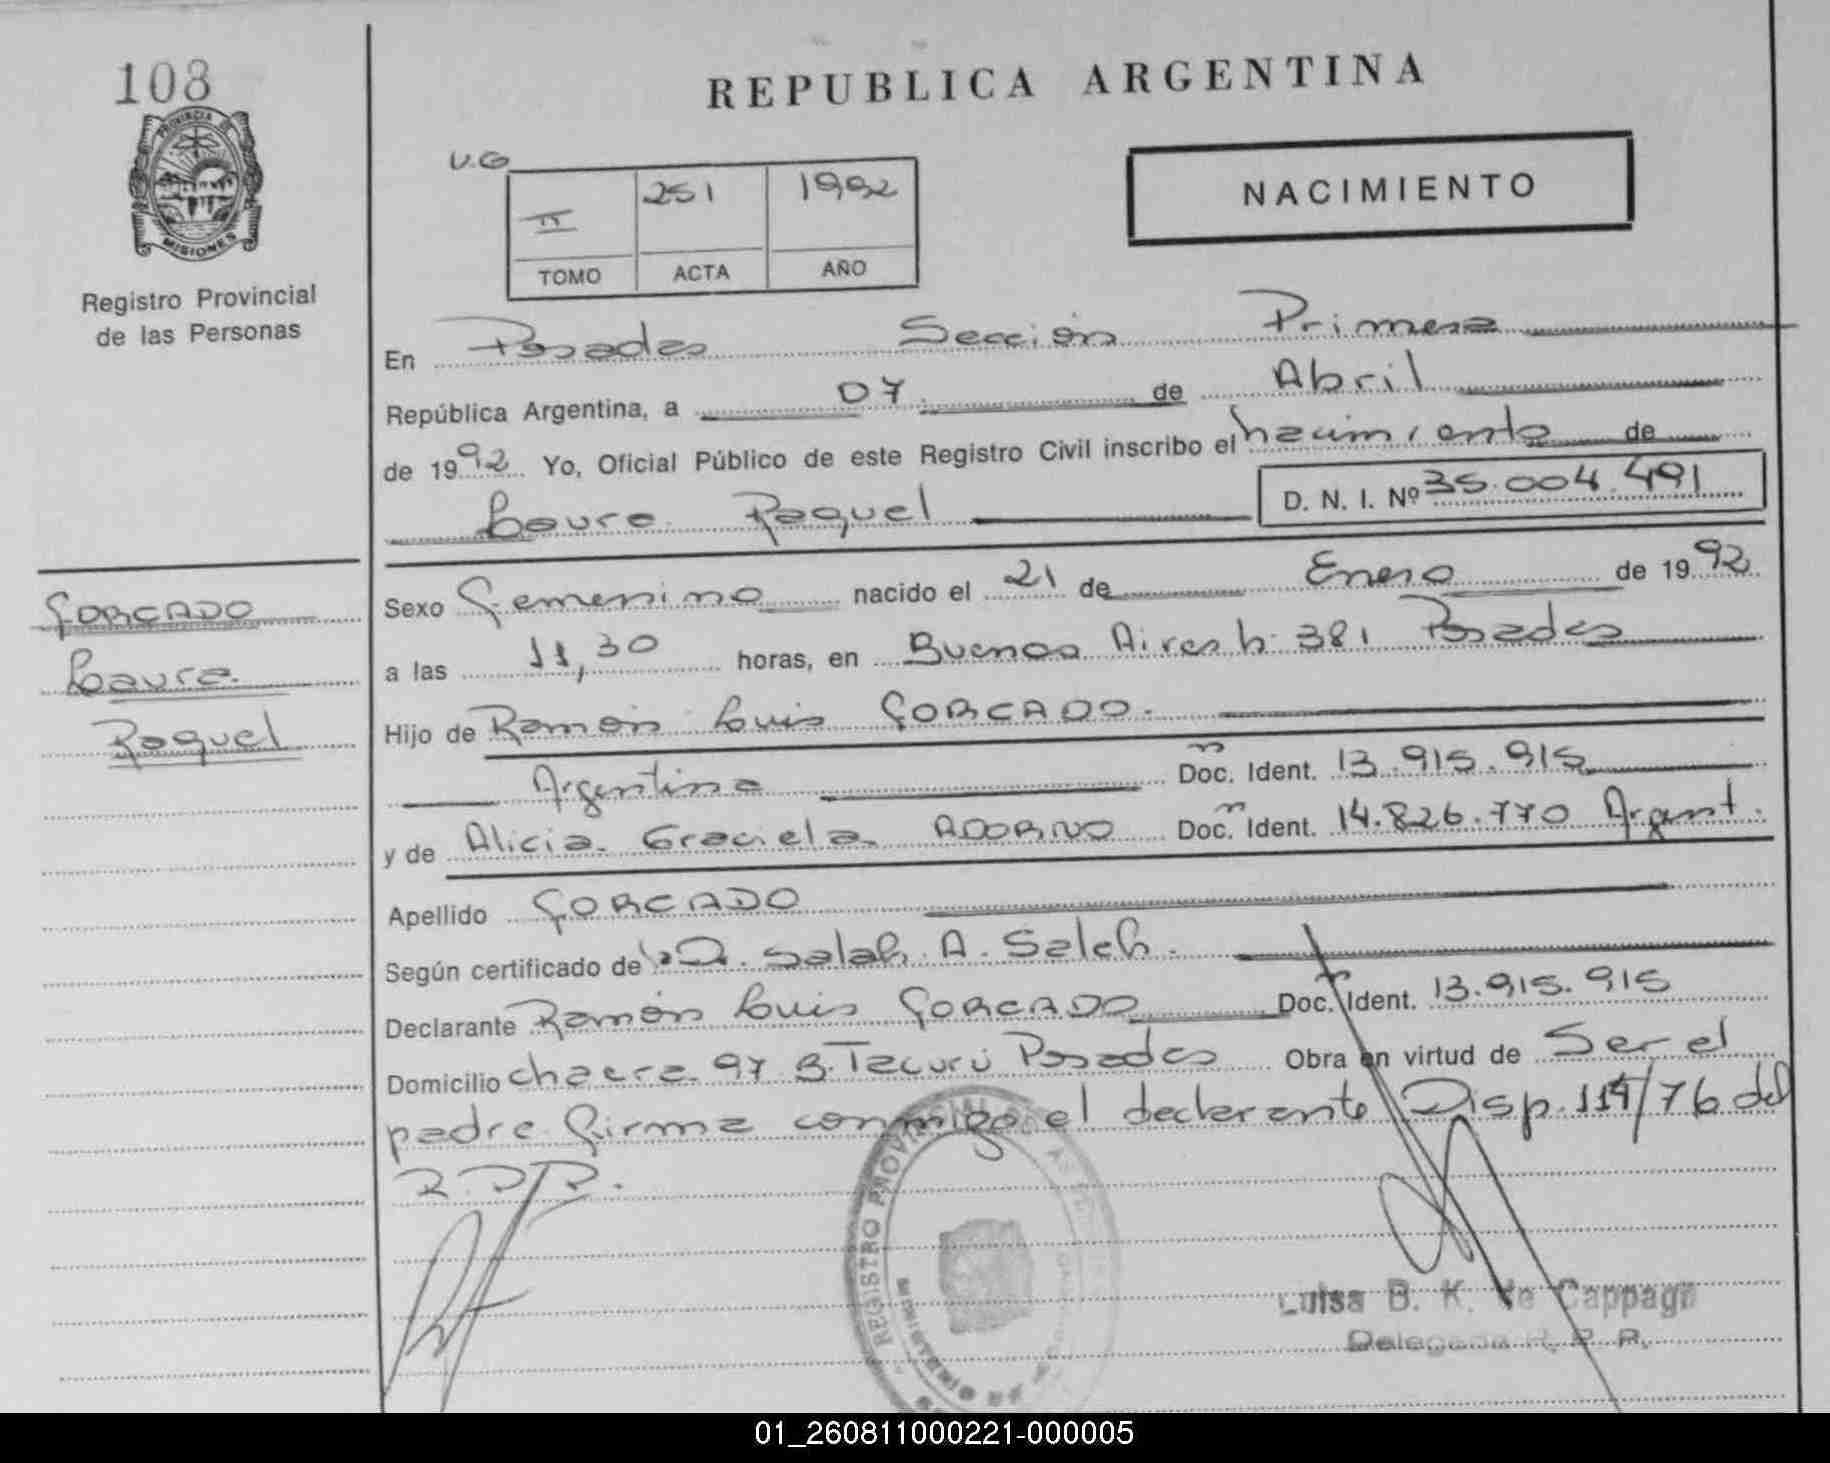 108
PROVINCIA DE
MISIONES
Registro Provincial
de las Personas
REPUBLICA ARGENTINA
NACIMIENTO
U.G
II 251 1992
TOMO ACTA AÑO
En Posadas Sección Primera
República Argentina, a 07 de Abril
de 1992 Yo, Oficial Público de este Registro Civil inscribo el nacimiento de
Laura Raquel D. N. I. Nº 35.004.491
FORCADO
Laura
Raquel
Sexo Femenino nacido el 21 de Enero de 1992
a las 11,30 horas, en Buenos Aires h. 381 Posadas
Hijo de Ramón Luis FORCADO.
Argentina Doc. Ident. 13.915.915
y de Alicia Graciela ADORNO Doc. Ident. 14.826.770 Argent.
Apellido FORCADO
Según certificado de Salah A. Saleh.
Declarante Ramón Luis FORCADO Doc. Ident. 13.915.915
Domicilio chacra 97 B. Tacurú Posadas Obra en virtud de Ser el
padre firma conmigo el declarante Disp. 114/76 del
R.P.P.
REGISTRO PROVINCIAL DE
MINISTERIO DE
Luisa B. K. de Cappagn
Delegada R. P. P.
01_260811000221-000005